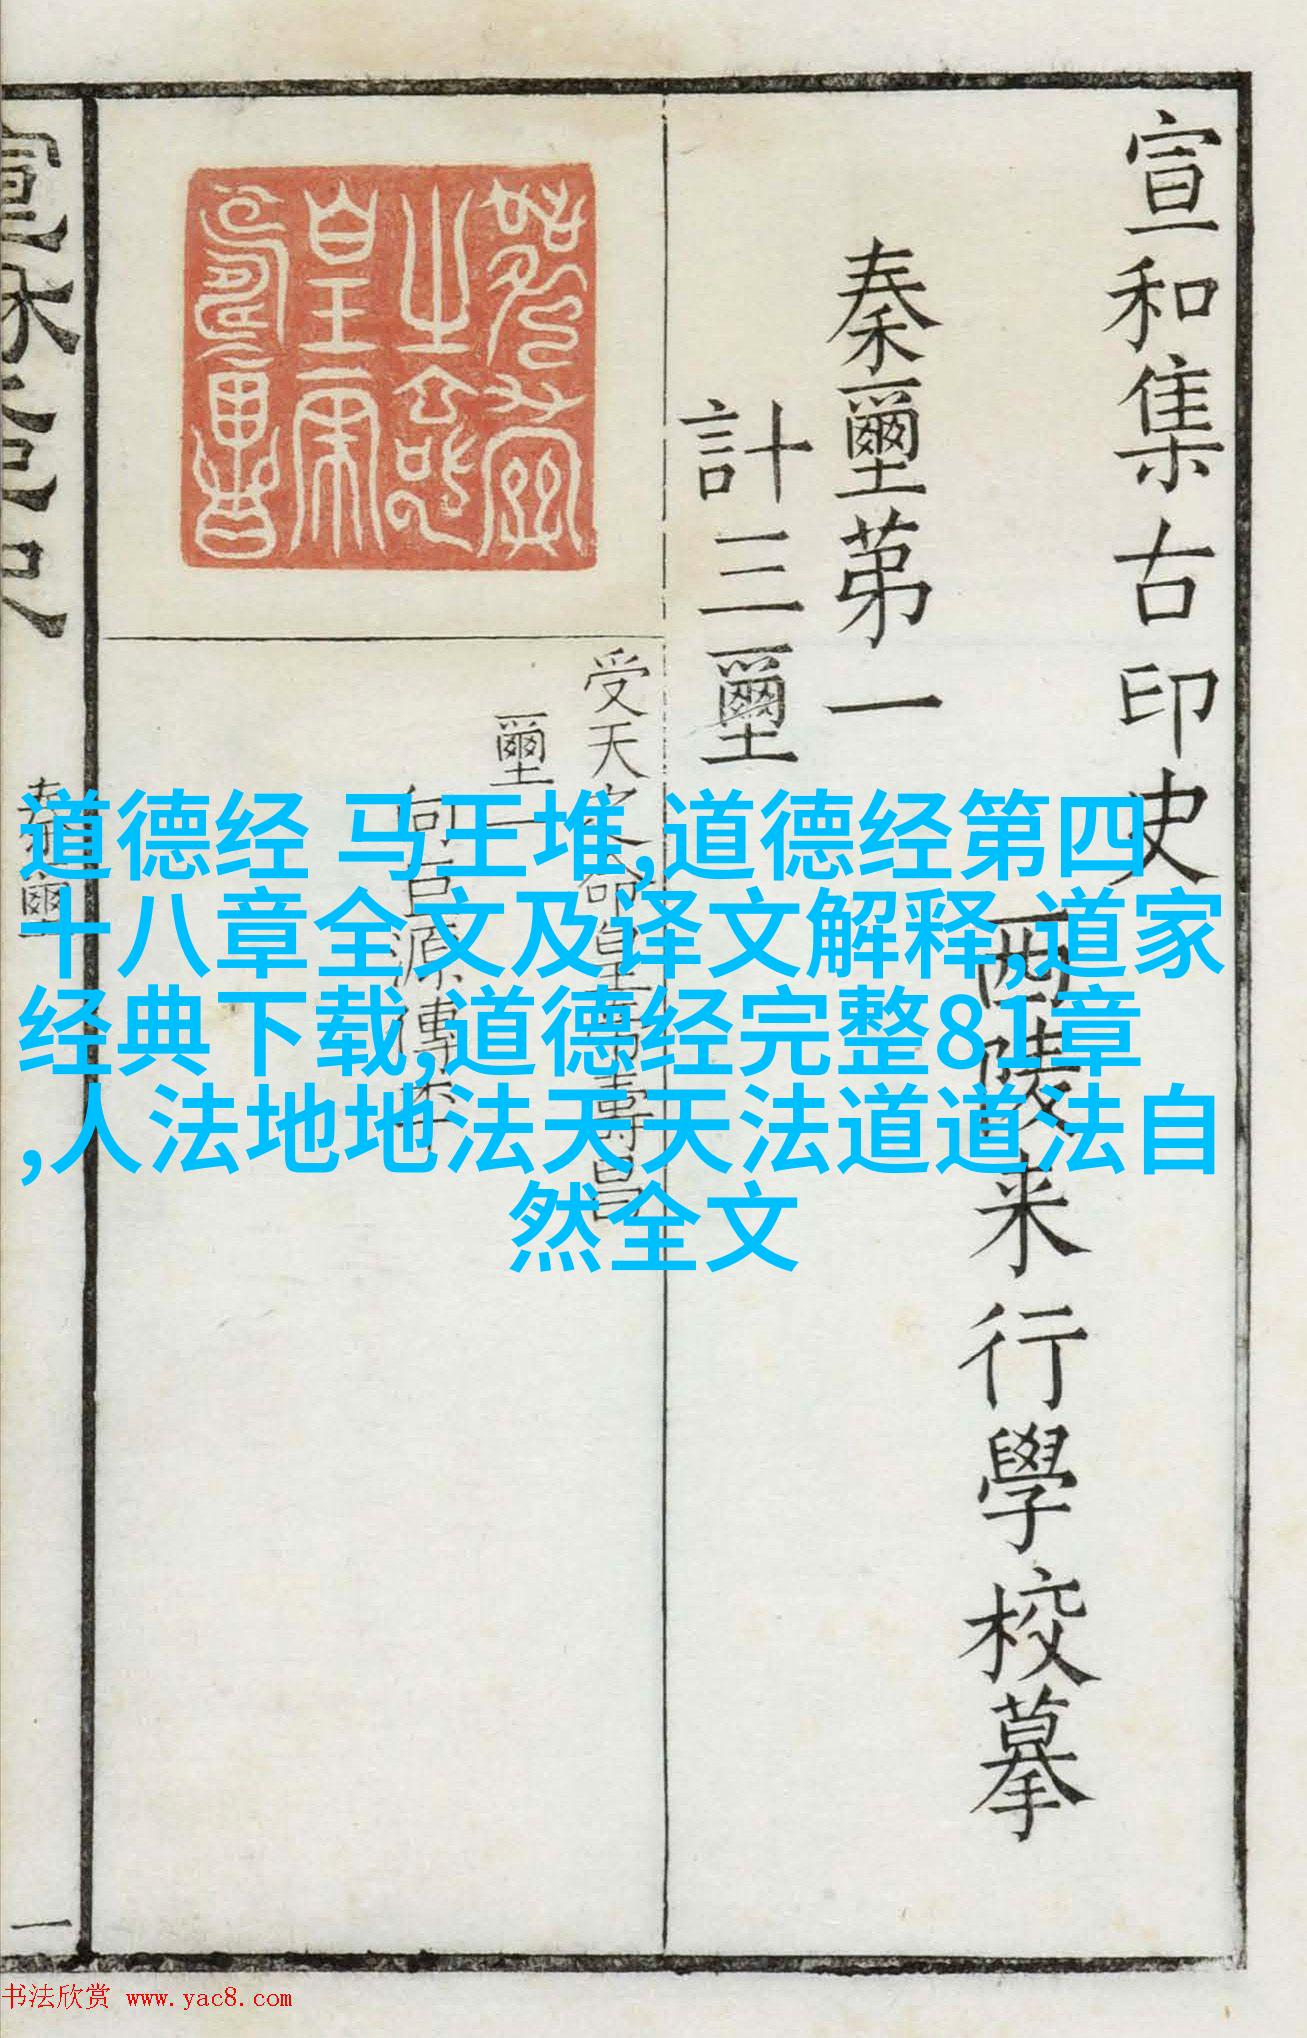 宣和集古印史
西陵来行學校摹
秦璽苐一
計三璽
受天之命皇帝壽昌
璽一
向巨源傳本
秦璽
一
道德经 马王堆,道德经第四
十八章全文及译文解释,道家
经典下载,道德经完整81章
,人法地地法天天法道道法自
然全文
书法欣赏 www.yac8.com